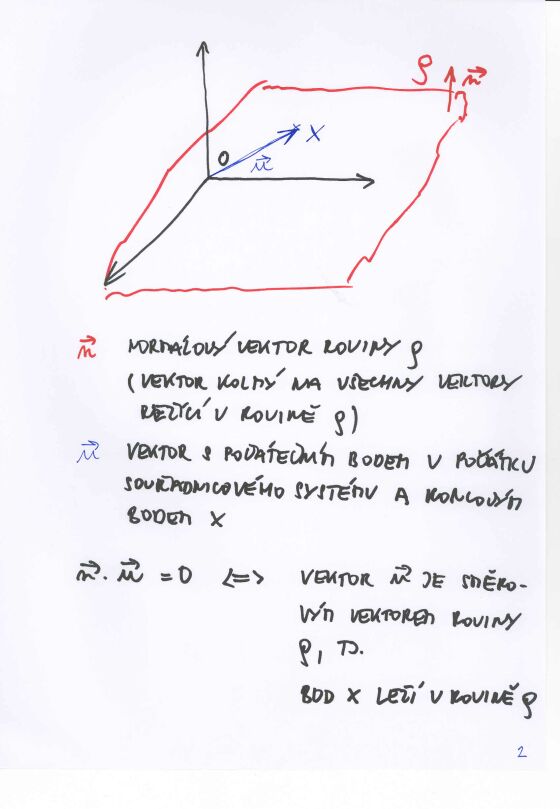 ρ n⃗
X
O
u⃗
n⃗ NORMÁLOVÝ VEKTOR ROVINY ρ
(VEKTOR KOLMÝ NA VŠECHNY VEKTORY
LEŽÍCÍ V ROVINĚ ρ)
u⃗ VEKTOR S POČÁTEČNÍM BODEM V POČÁTKU
SOUŘADNICOVÉHO SYSTÉMU A KONCOVÝM
BODEM X
n⃗ . u⃗ = 0 <=> VEKTOR u⃗ JE SMĚRO-
VÝM VEKTOREM ROVINY
ρ, TJ.
BOD X LEŽÍ V ROVINĚ ρ
2